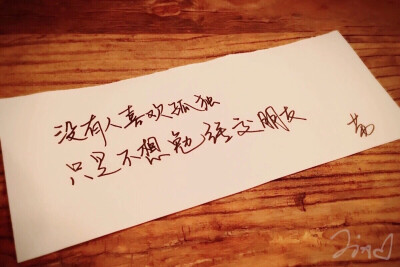 没有人喜欢孤独
只是不想勉强交朋友